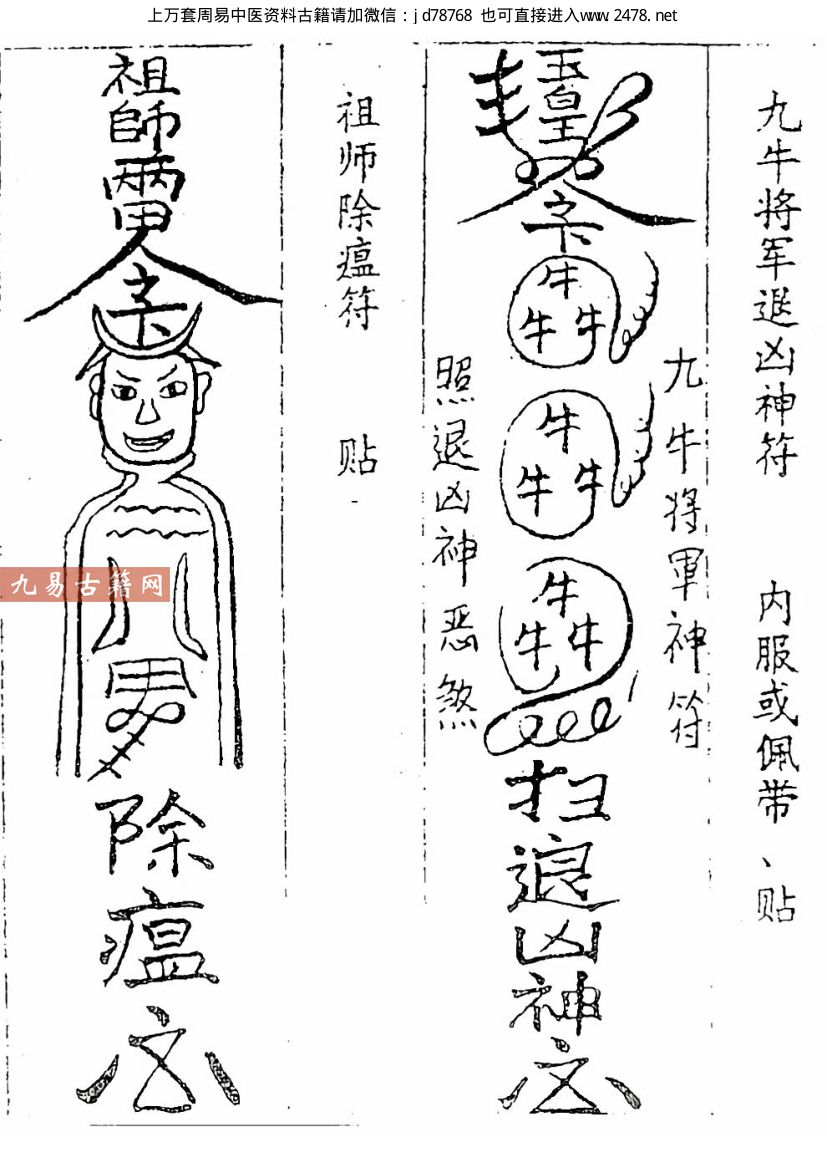 上万套周易中医资料古籍请加微信：jd78768 也可直接进入www.2478.net
九牛将军退凶神符 内服或佩带、贴
九牛将軍神符
玉皇
令
牛
牛 牛
牛
牛 牛
牛
牛 牛
扫退凶神
照退凶神恶煞
祖师除瘟符 贴
祖師
令
除瘟
九易古籍网